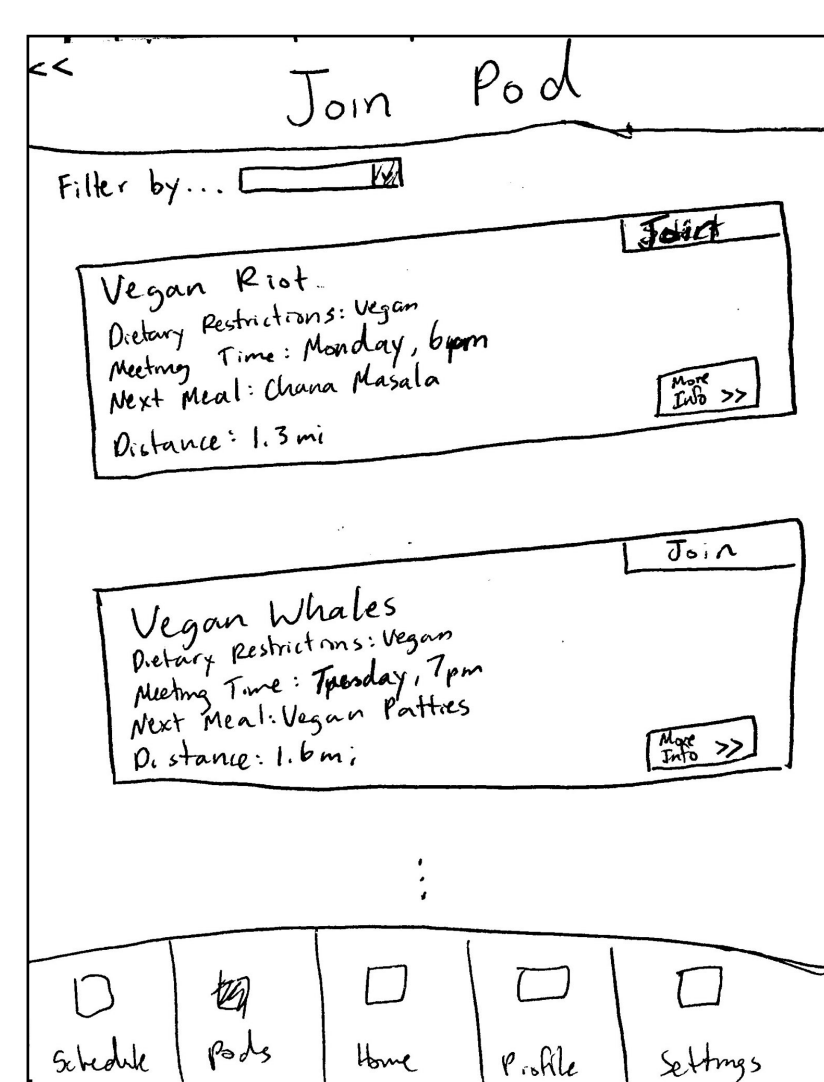 <<
Join Pod
Filter by...
Vegan Riot
Dietary Restrictions: Vegan
Meeting Time: Monday, 6pm
Next Meal: Chana Masala
Distance: 1.3 mi
More
Info >>
Join
Vegan Whales
Dietary Restrictions: Vegan
Meeting Time: Tuesday, 7pm
Next Meal: Vegan Patties
Distance: 1.6 mi
More
Info >>
Schedule Pods Home Profile Settings